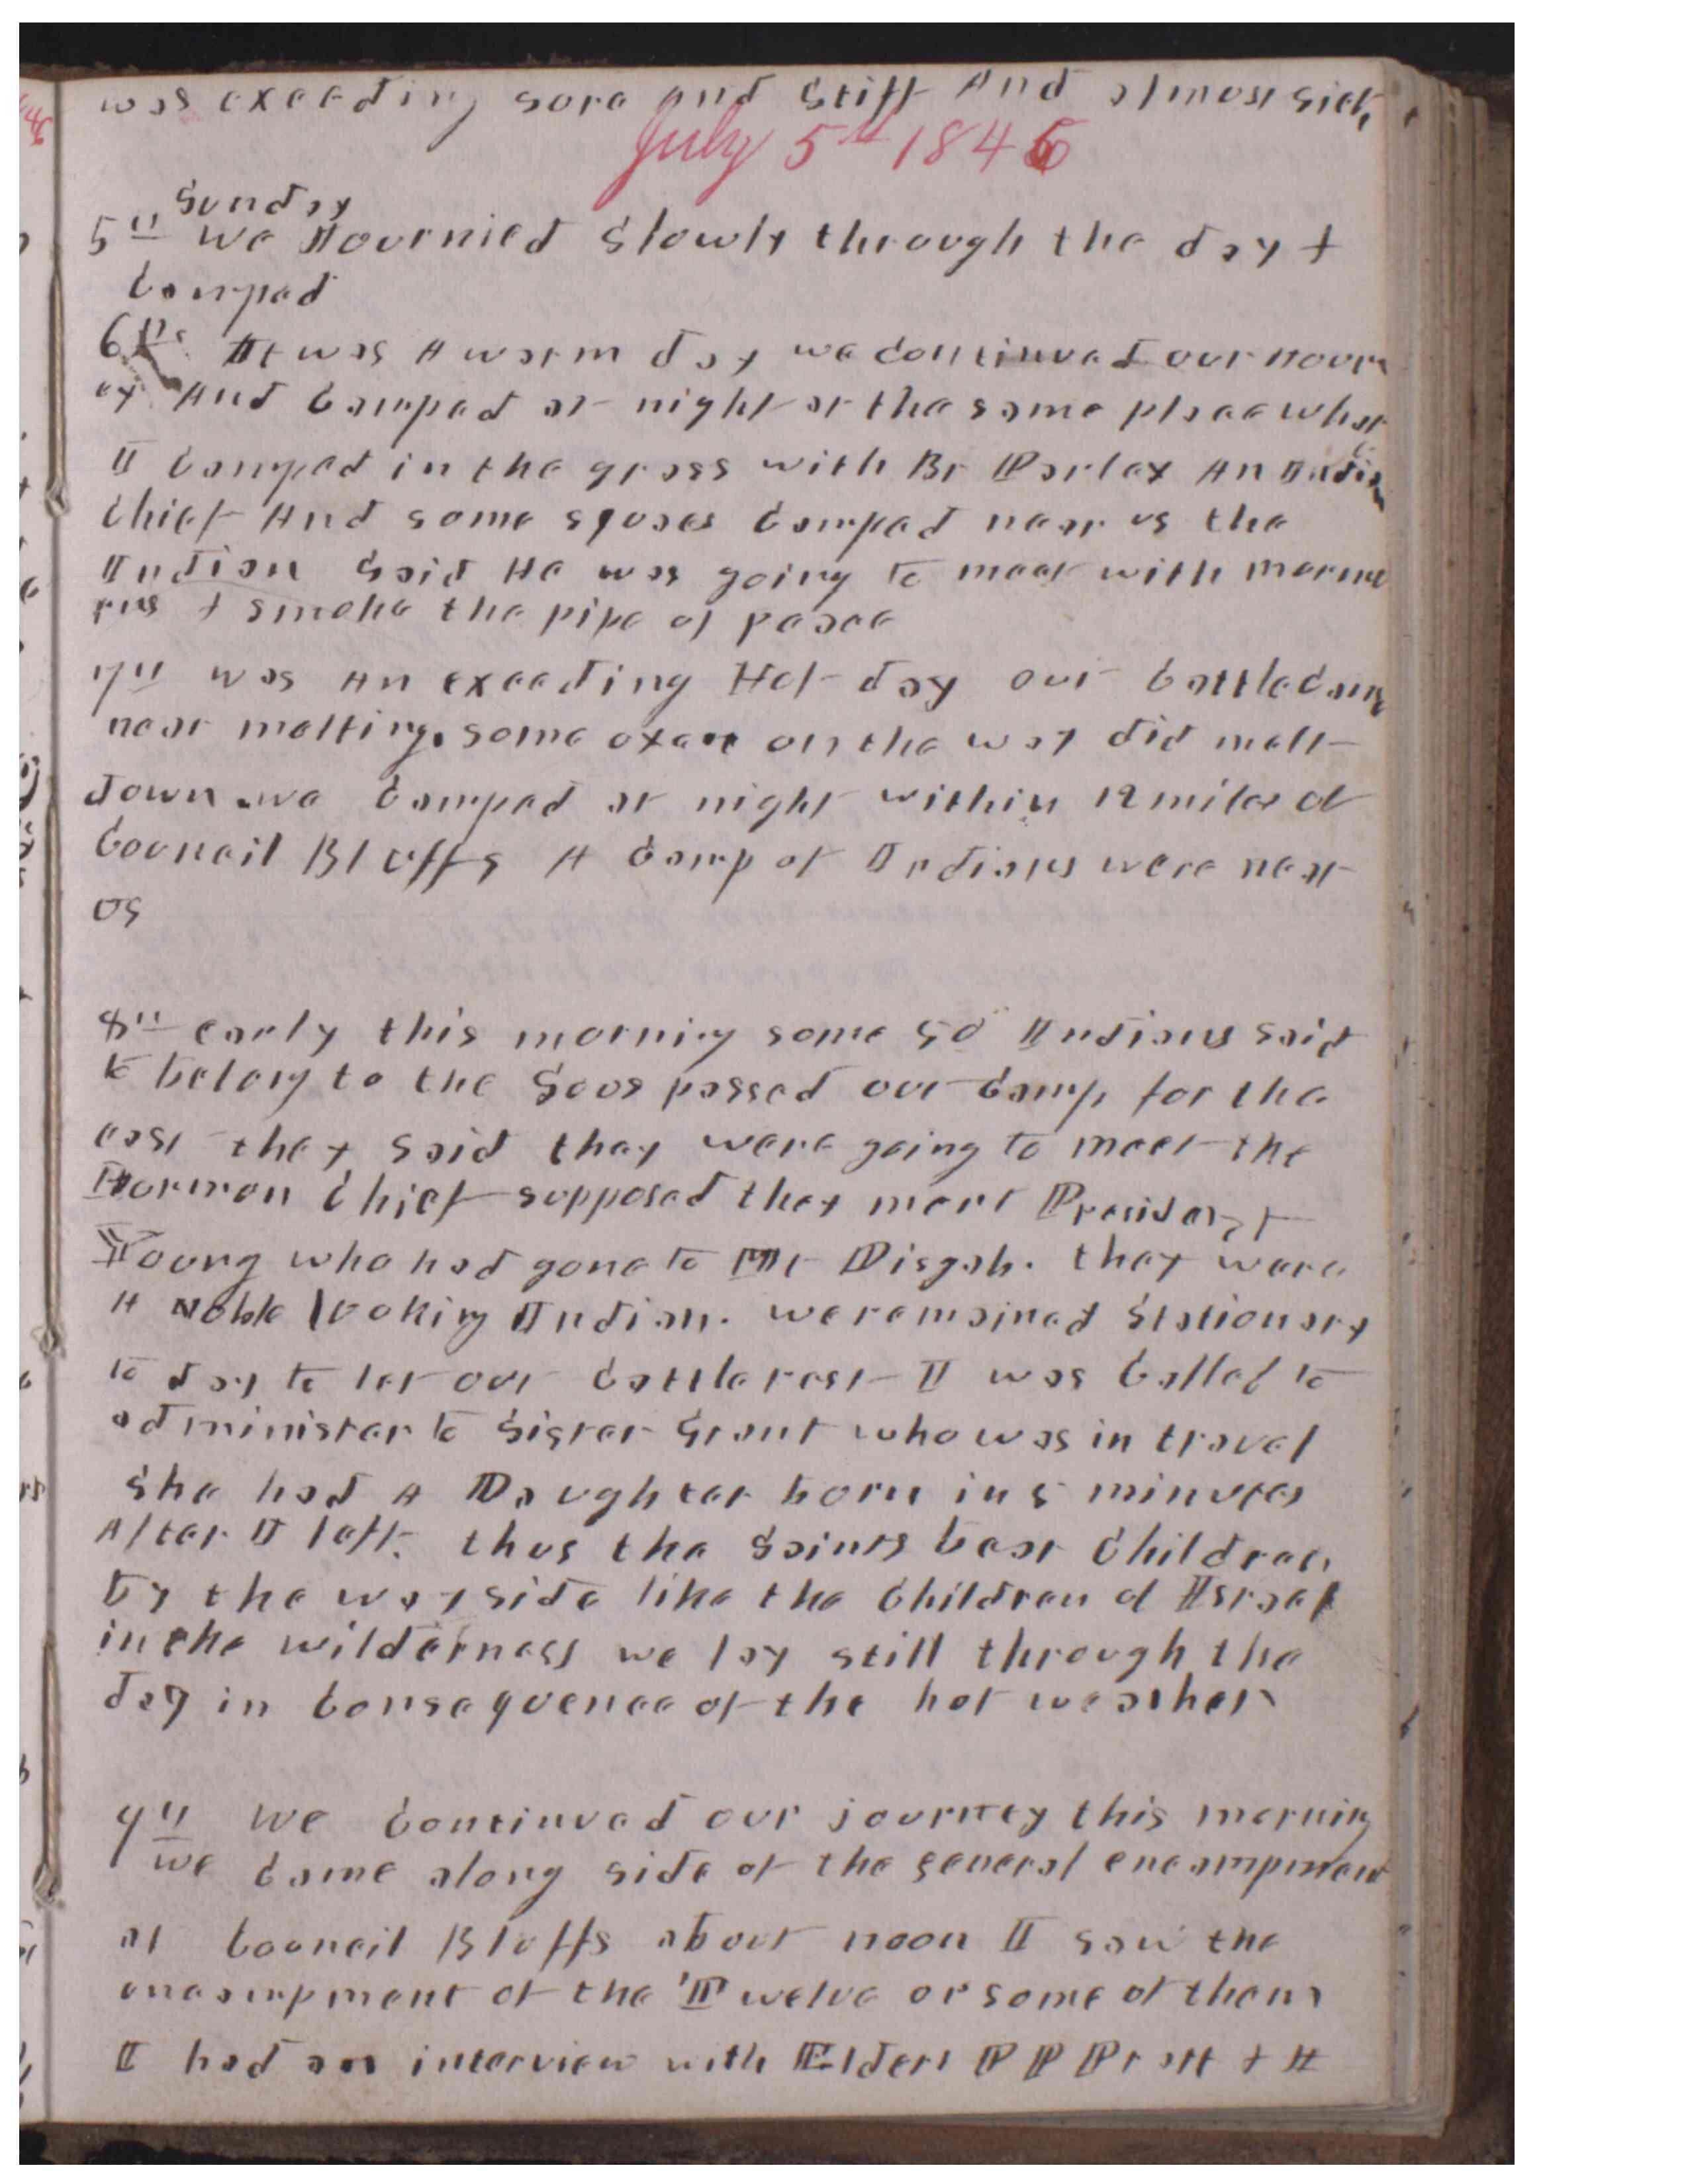 was exceeding sore and stiff And almost sick,
July 5th 1846
Sunday
5th we Journied slowly through the day &
Camped
6th It was A warm day we continued our Journ
ey And Camped at night at the same place whare
I Camped in the grass with Br Parley An Indian
Chief And some squaes Camped near us the
Indian said He was going to meet with Mormo
ns & smoke the pipe of peace
7th was An exceeding Hot day our Cattle came
near melting. some oxen on the way did melt
down. we Camped at night within 12 miles of
Council Bluffs A Camp of Indians were near
us
8th early this morning some 50 Indians said
to belong to the Soos passed our Camp for the
east they said they were going to meet the
Mormon Chief supposed they ment President
Young who had gone to Mt Pisgah. they were
A Noble looking Indian. we remained stationary
to day to let our Cattle rest I was Called to
administer to Sister Grant who was in travel
she had A Daughter born in 5 minutes
After I left. thus the Saints bear Children
by the way side like the Children of Israel
in the wilderness we lay still through the
day in Consequence of the hot weather
9th we Continued our journey this morning
we Came along side of the general encampment
at Council Bluffs about noon I saw the
encampment of the Twelve or some of them
I had an interview with Elders P P Pratt & H